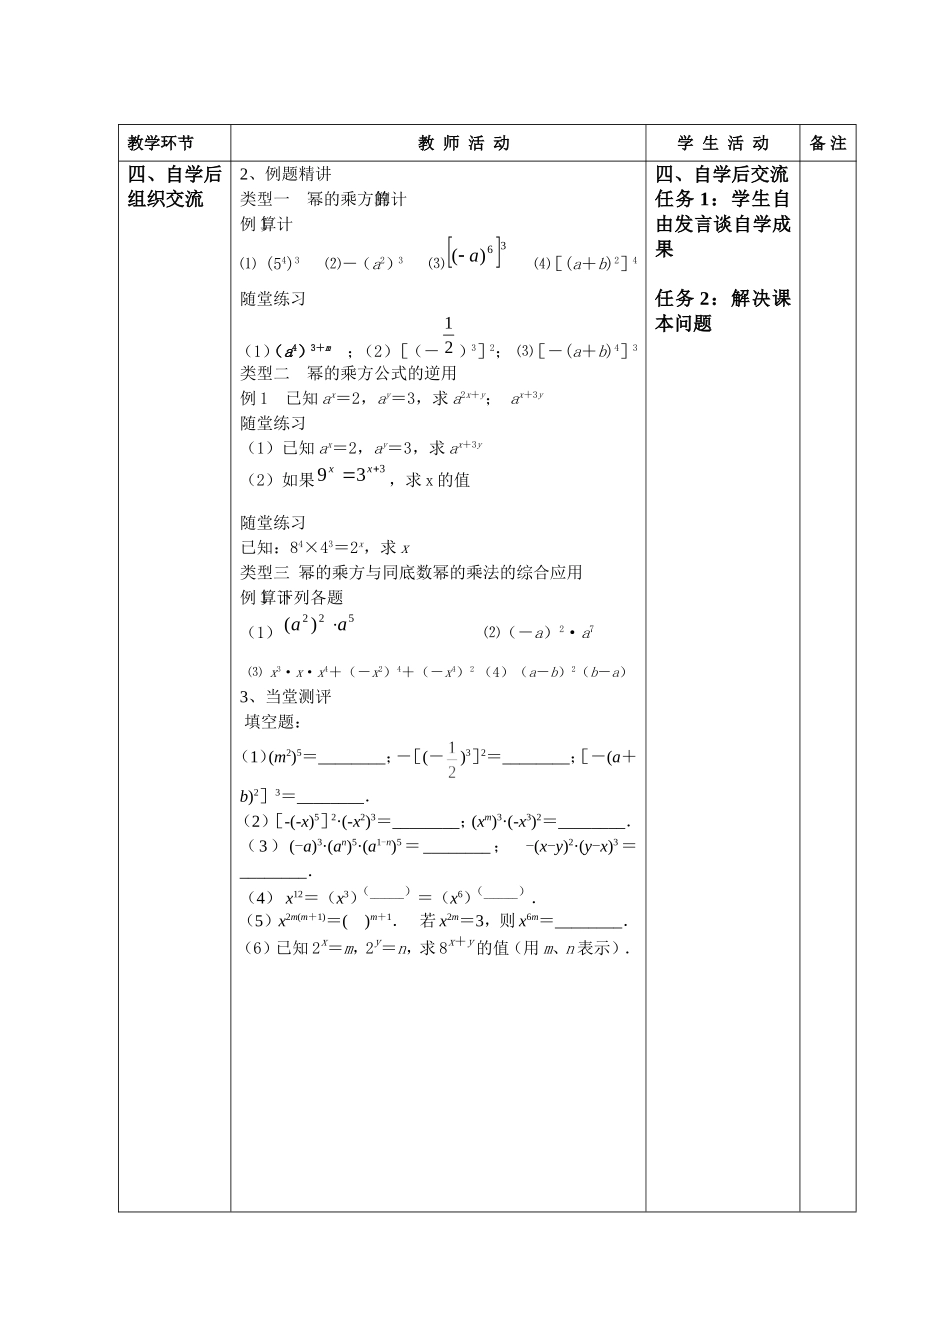 教学环节 教 师 活 动 学 生 活 动 备 注
四、自学后
组织交流
2、例题精讲
类型一 幂的乘方的计算
例 1 计算
⑴ (5⁴)³ ⑵-(a²)³ ⑶[(-a)⁶]³ ⑷[(a+b)²]⁴
随堂练习
(1)(a⁴)³⁺ᵐ ;(2)[(-1/2)³]²; ⑶[-(a+b)⁴]³
类型二 幂的乘方公式的逆用
例 1 已知 aˣ=2,aʸ=3,求 a²ˣ⁺ʸ; aˣ⁺³ʸ
随堂练习
(1)已知 aˣ=2,aʸ=3,求 aˣ⁺³ʸ
(2)如果 9ˣ=3ˣ⁺³,求 x 的值
随堂练习
已知:8⁴×4³=2ˣ,求 x
类型三 幂的乘方与同底数幂的乘法的综合应用
例 1 计算下列各题
(1) (a²)²·a⁵ ⑵(-a)²·a⁷
⑶ x³·x·x⁴+(-x²)⁴+(-x⁴)² (4)(a-b)²(b-a)
3、当堂测评
填空题:
(1)(m²)⁵=________;-[(-1/2)³]²=________;[-(a+
b)²]³=________.
(2)[-(-x)⁵]²·(-x²)³=________;(xᵐ)³·(-x³)²=________.
(3)(-a)³·(aⁿ)⁵·(a¹⁻ⁿ)⁵=________; -(x-y)²·(y-x)³=
________.
(4) x¹²=(x³)⁽——⁾=(x⁶)⁽——⁾.
(5)x²ᵐ⁽ᵐ⁺¹⁾=( )ᵐ⁺¹. 若 x²ᵐ=3,则 x⁶ᵐ=________.
(6)已知 2ˣ=m,2ʸ=n,求 8ˣ⁺ʸ 的值(用 m、n 表示).
四、自学后交流
任务 1:学生自
由发言谈自学成
果
任务 2:解决课
本问题